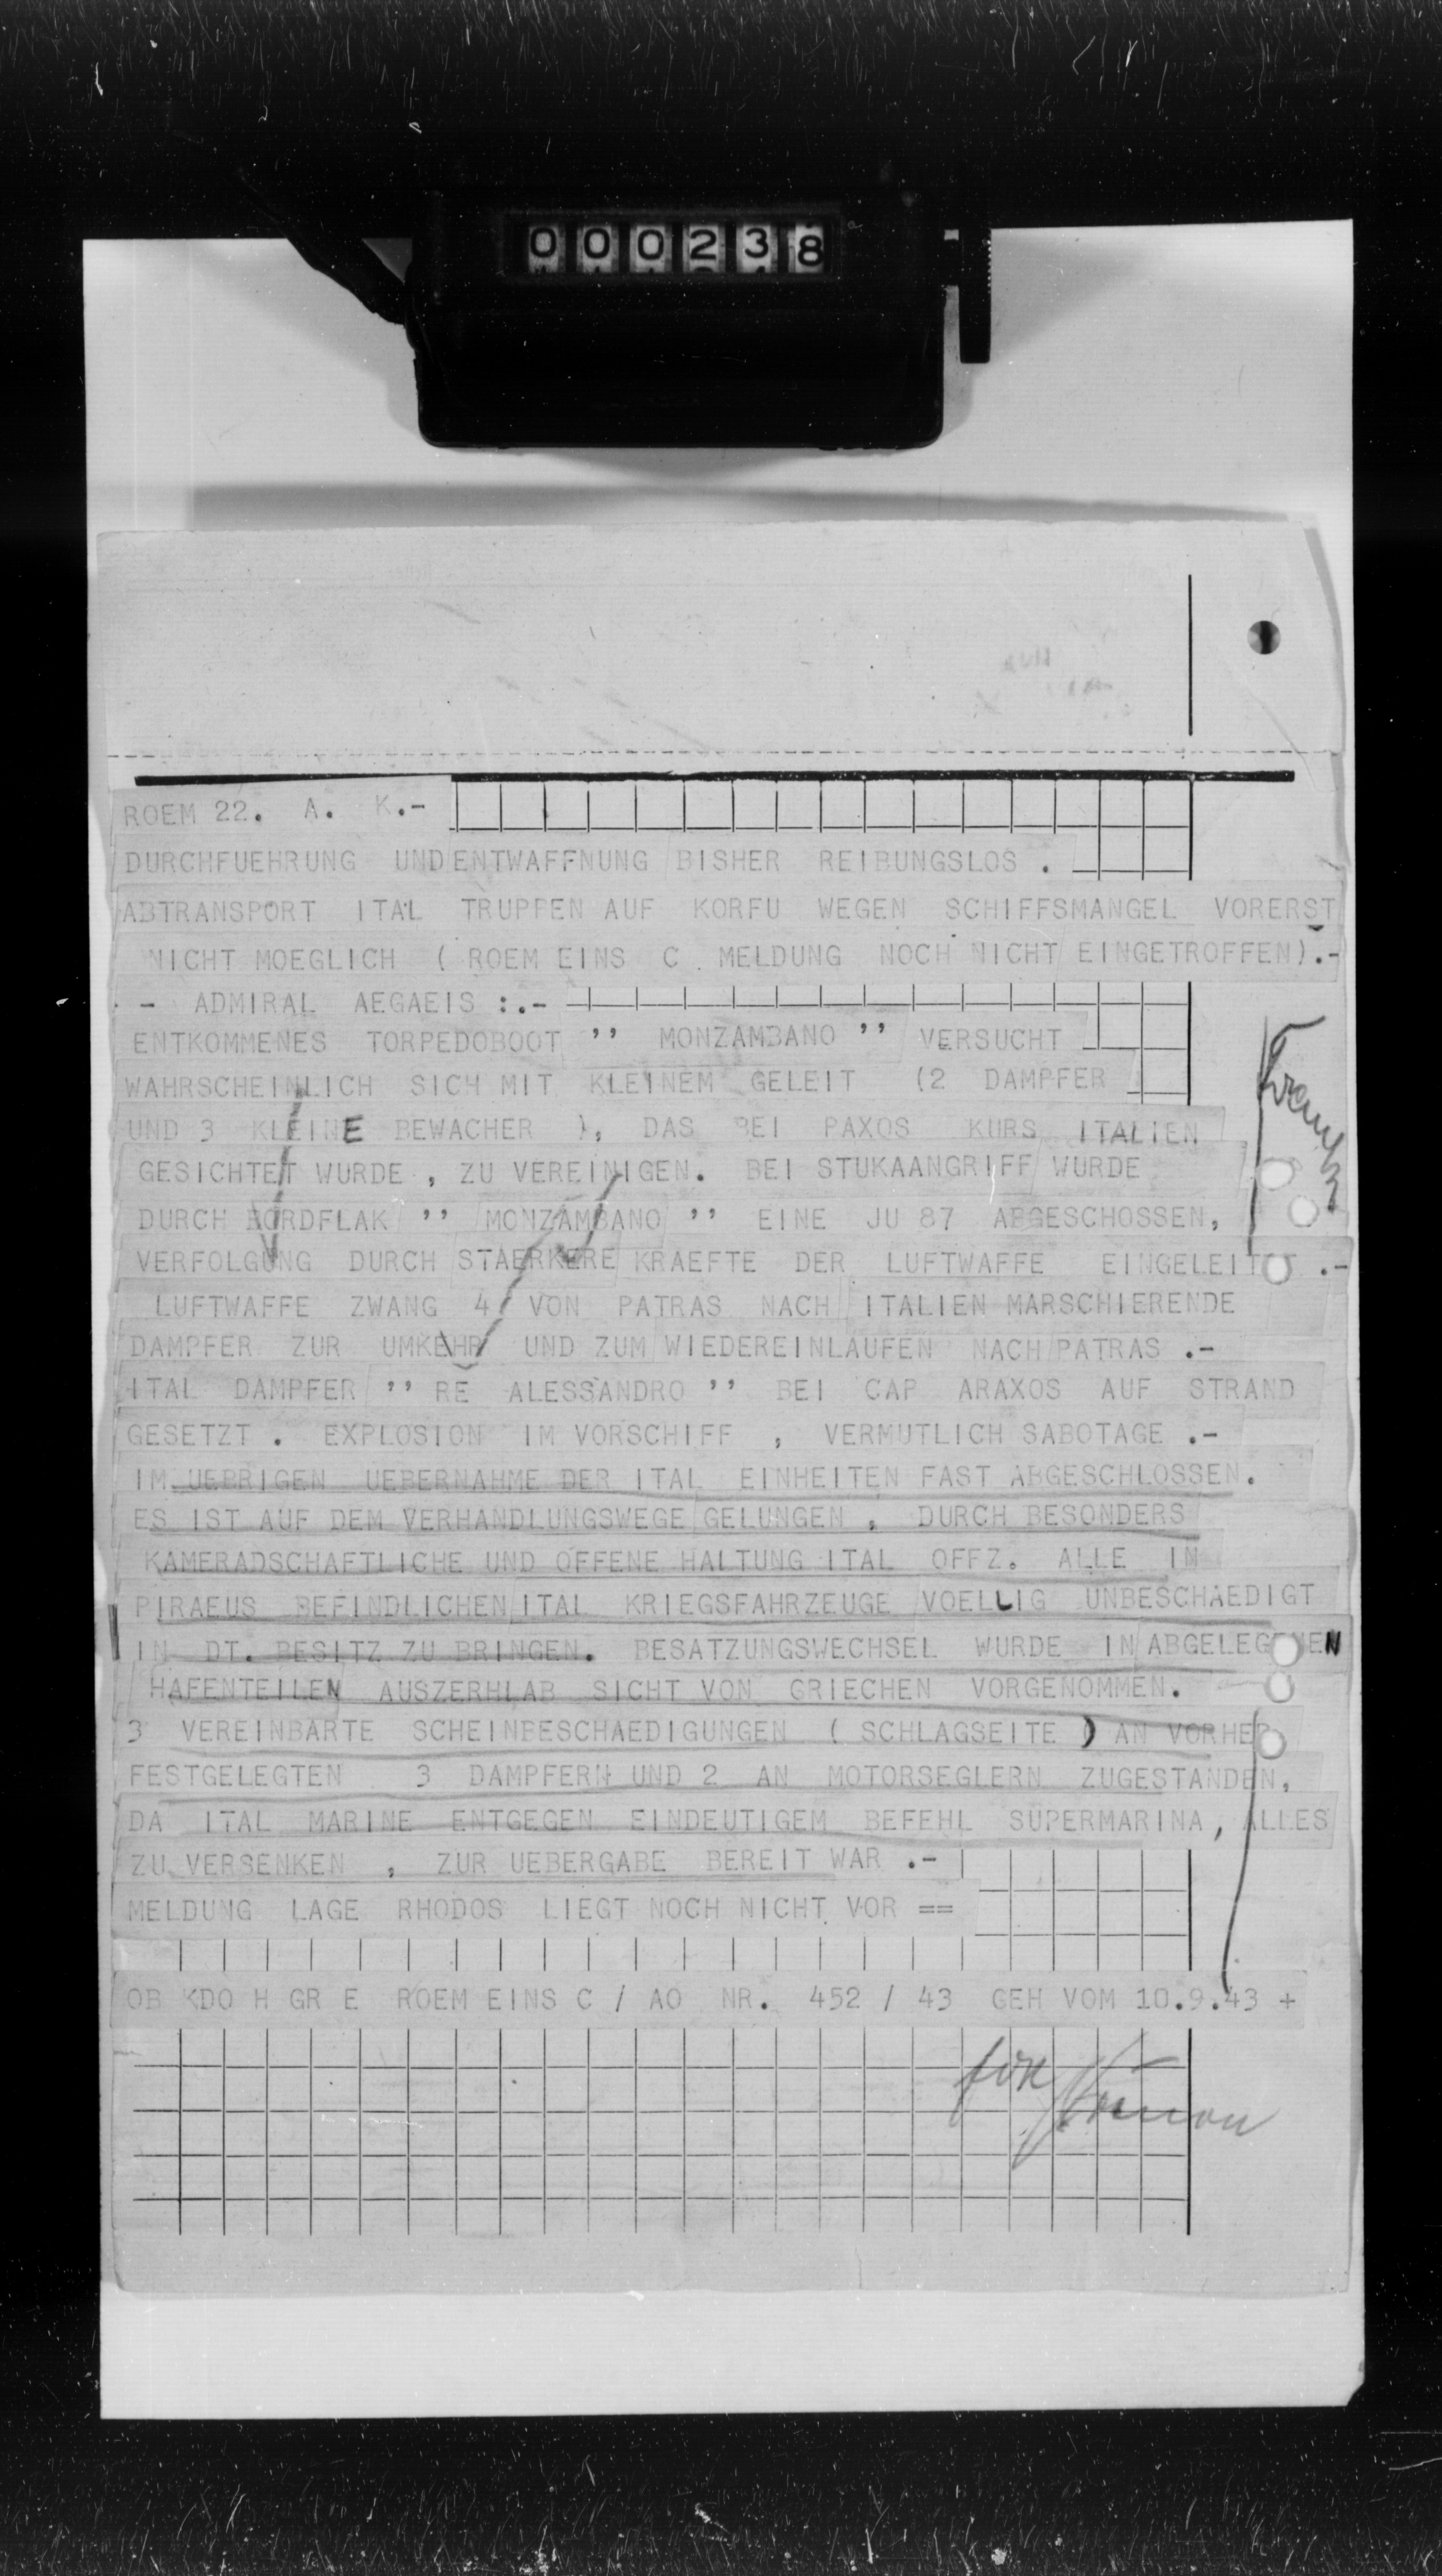 000238
ROEM 22. A. K.-
DURCHFUEHRUNG UND ENTWAFFNUNG BISHER REIBUNGSLOS .
ABTRANSPORT ITAL TRUPPEN AUF KORFU WEGEN SCHIFFSMANGEL VORERST
NICHT MOEGLICH ( ROEM EINS C MELDUNG NOCH NICHT EINGETROFFEN).-
- ADMIRAL AEGAEIS :.-
ENTKOMMENES TORPEDOBOOT ’’ MONZAMBANO ’’ VERSUCHT
WAHRSCHEINLICH SICH MIT KLEINEM GELEIT (2 DAMPFER
UND 3 KLEINE BEWACHER ), DAS BEI PAXOS KURS ITALIEN
GESICHTET WURDE , ZU VEREINIGEN. BEI STUKAANGRIFF WURDE
DURCH BORDFLAK ’’ MONZAMBANO ’’ EINE JU 87 ABGESCHOSSEN,
VERFOLGUNG DURCH STAERKERE KRAEFTE DER LUFTWAFFE EINGELEITET .-
LUFTWAFFE ZWANG 4 VON PATRAS NACH ITALIEN MARSCHIERENDE
DAMPFER ZUR UMKEHR UND ZUM WIEDEREINLAUFEN NACH PATRAS .-
ITAL DAMPFER ’’ RE ALESSANDRO ’’ BEI CAP ARAXOS AUF STRAND
GESETZT . EXPLOSION IM VORSCHIFF , VERMUTLICH SABOTAGE .-
IM UEBRIGEN UEBERNAHME DER ITAL EINHEITEN FAST ABGESCHLOSSEN.
ES IST AUF DEM VERHANDLUNGSWEGE GELUNGEN , DURCH BESONDERS
KAMERADSCHAFTLICHE UND OFFENE HALTUNG ITAL OFFZ. ALLE IN
PIRAEUS BEFINDLICHEN ITAL KRIEGSFAHRZEUGE VOELLIG UNBESCHAEDIGT
IN DT. BESITZ ZU BRINGEN. BESATZUNGSWECHSEL WURDE IN ABGELEGENEN
HAFENTEILEN AUSZERHLAB SICHT VON GRIECHEN VORGENOMMEN.
3 VEREINBARTE SCHEINBESCHAEDIGUNGEN ( SCHLAGSEITE ) AN VORHER
FESTGELEGTEN 3 DAMPFERN UND 2 AN MOTORSEGLERN ZUGESTANDEN,
DA ITAL MARINE ENTGEGEN EINDEUTIGEM BEFEHL SUPERMARINA, ALLES
ZU VERSENKEN , ZUR UEBERGABE BEREIT WAR .-
MELDUNG LAGE RHODOS LIEGT NOCH NICHT VOR ==
OB KDO H GR E ROEM EINS C / AO NR. 452 / 43 GEH VOM 10.9.43 +